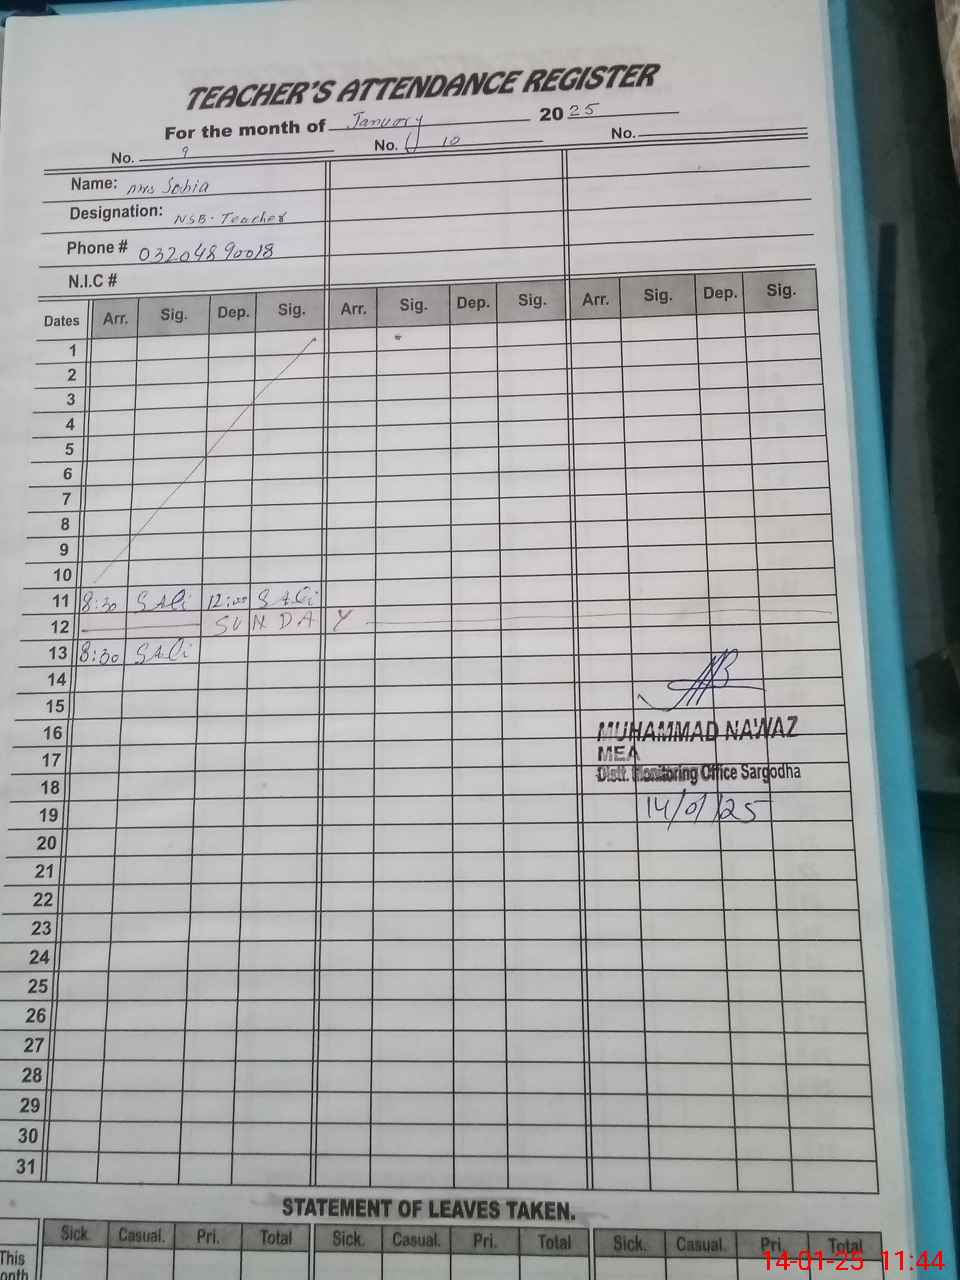 TEACHER'S ATTENDANCE REGISTER
For the month of January 2025
No. 9 No. 10 No.
Name: Mrs Sobia
Designation: NSB. Teacher
Phone # 03204890018
N.I.C #
Dates Arr. Sig. Dep. Sig. Arr. Sig. Dep. Sig. Arr. Sig. Dep. Sig.
1
2
3
4
5
6
7
8
9
10
11 8:30 12:00
12 SUNDAY
13 8:30
14
15
16
17
18
19
20
21
22
23
24
25
26
27
28
29
30
31
MUHAMMAD NAWAZ
MEA
Distt. Monitoring Office Sargodha
14/01/25
STATEMENT OF LEAVES TAKEN.
Sick. Casual. Pri. Total Sick. Casual. Pri. Total Sick. Casual. Pri. Total
This
onth
14-01-25 11:44